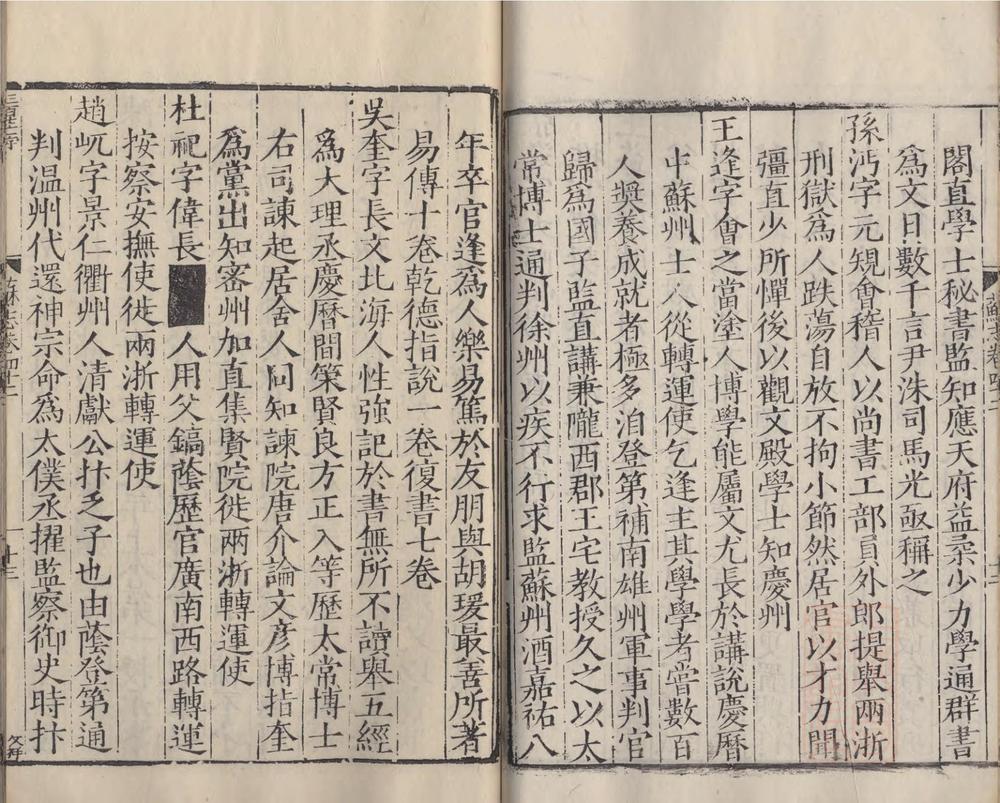 閣直學士秘書監知應天府益柔少力學通群書
爲文日數千言尹洙司馬光亟稱之
孫沔字元規會稽人以尚書工部員外郎提舉兩浙
刑獄爲人跌蕩自放不拘小節然居官以才力聞
彊直少所憚後以觀文殿學士知慶州
王逢字會之當塗人博學能屬文尤長於講說慶曆
中蘇州士人從轉運使乞逢主其學學者嘗數百
人奬養成就者極多洎登第補南雄州軍事判官
歸爲國子監直講兼隴西郡王宅教授久之以太
常博士通判徐州以疾不行求監蘇州酒嘉祐八
年卒官逢爲人樂易篤於友朋與胡瑗最善所著
易傳十卷乾德指說一卷復書七卷
吳奎字長文北海人性強記於書無所不讀舉五經
爲大理丞慶曆間策賢良方正入等歷太常博士
右司諫起居舍人同知諫院唐介論文彥博指奎
爲黨出知密州加直集賢院徙兩浙轉運使
杜杞字偉長 人用父鎬蔭歷官廣南西路轉運
按察安撫使徙兩浙轉運使
趙屼字景仁衢州人清獻公抃之子也由蔭登第通
判溫州代還神宗命爲太僕丞擢監察御史時抃